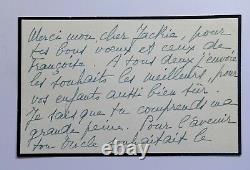 Merci mon cher Jackie, pour
tes bons vœux et ceux de
Françoise. A tous deux j'envoie
les souhaits les meilleurs, pour
vos enfants aussi bien sûr.
Je sais que tu comprends ma
grande peine. Pour l'avenir
ton oncle souhaitait le